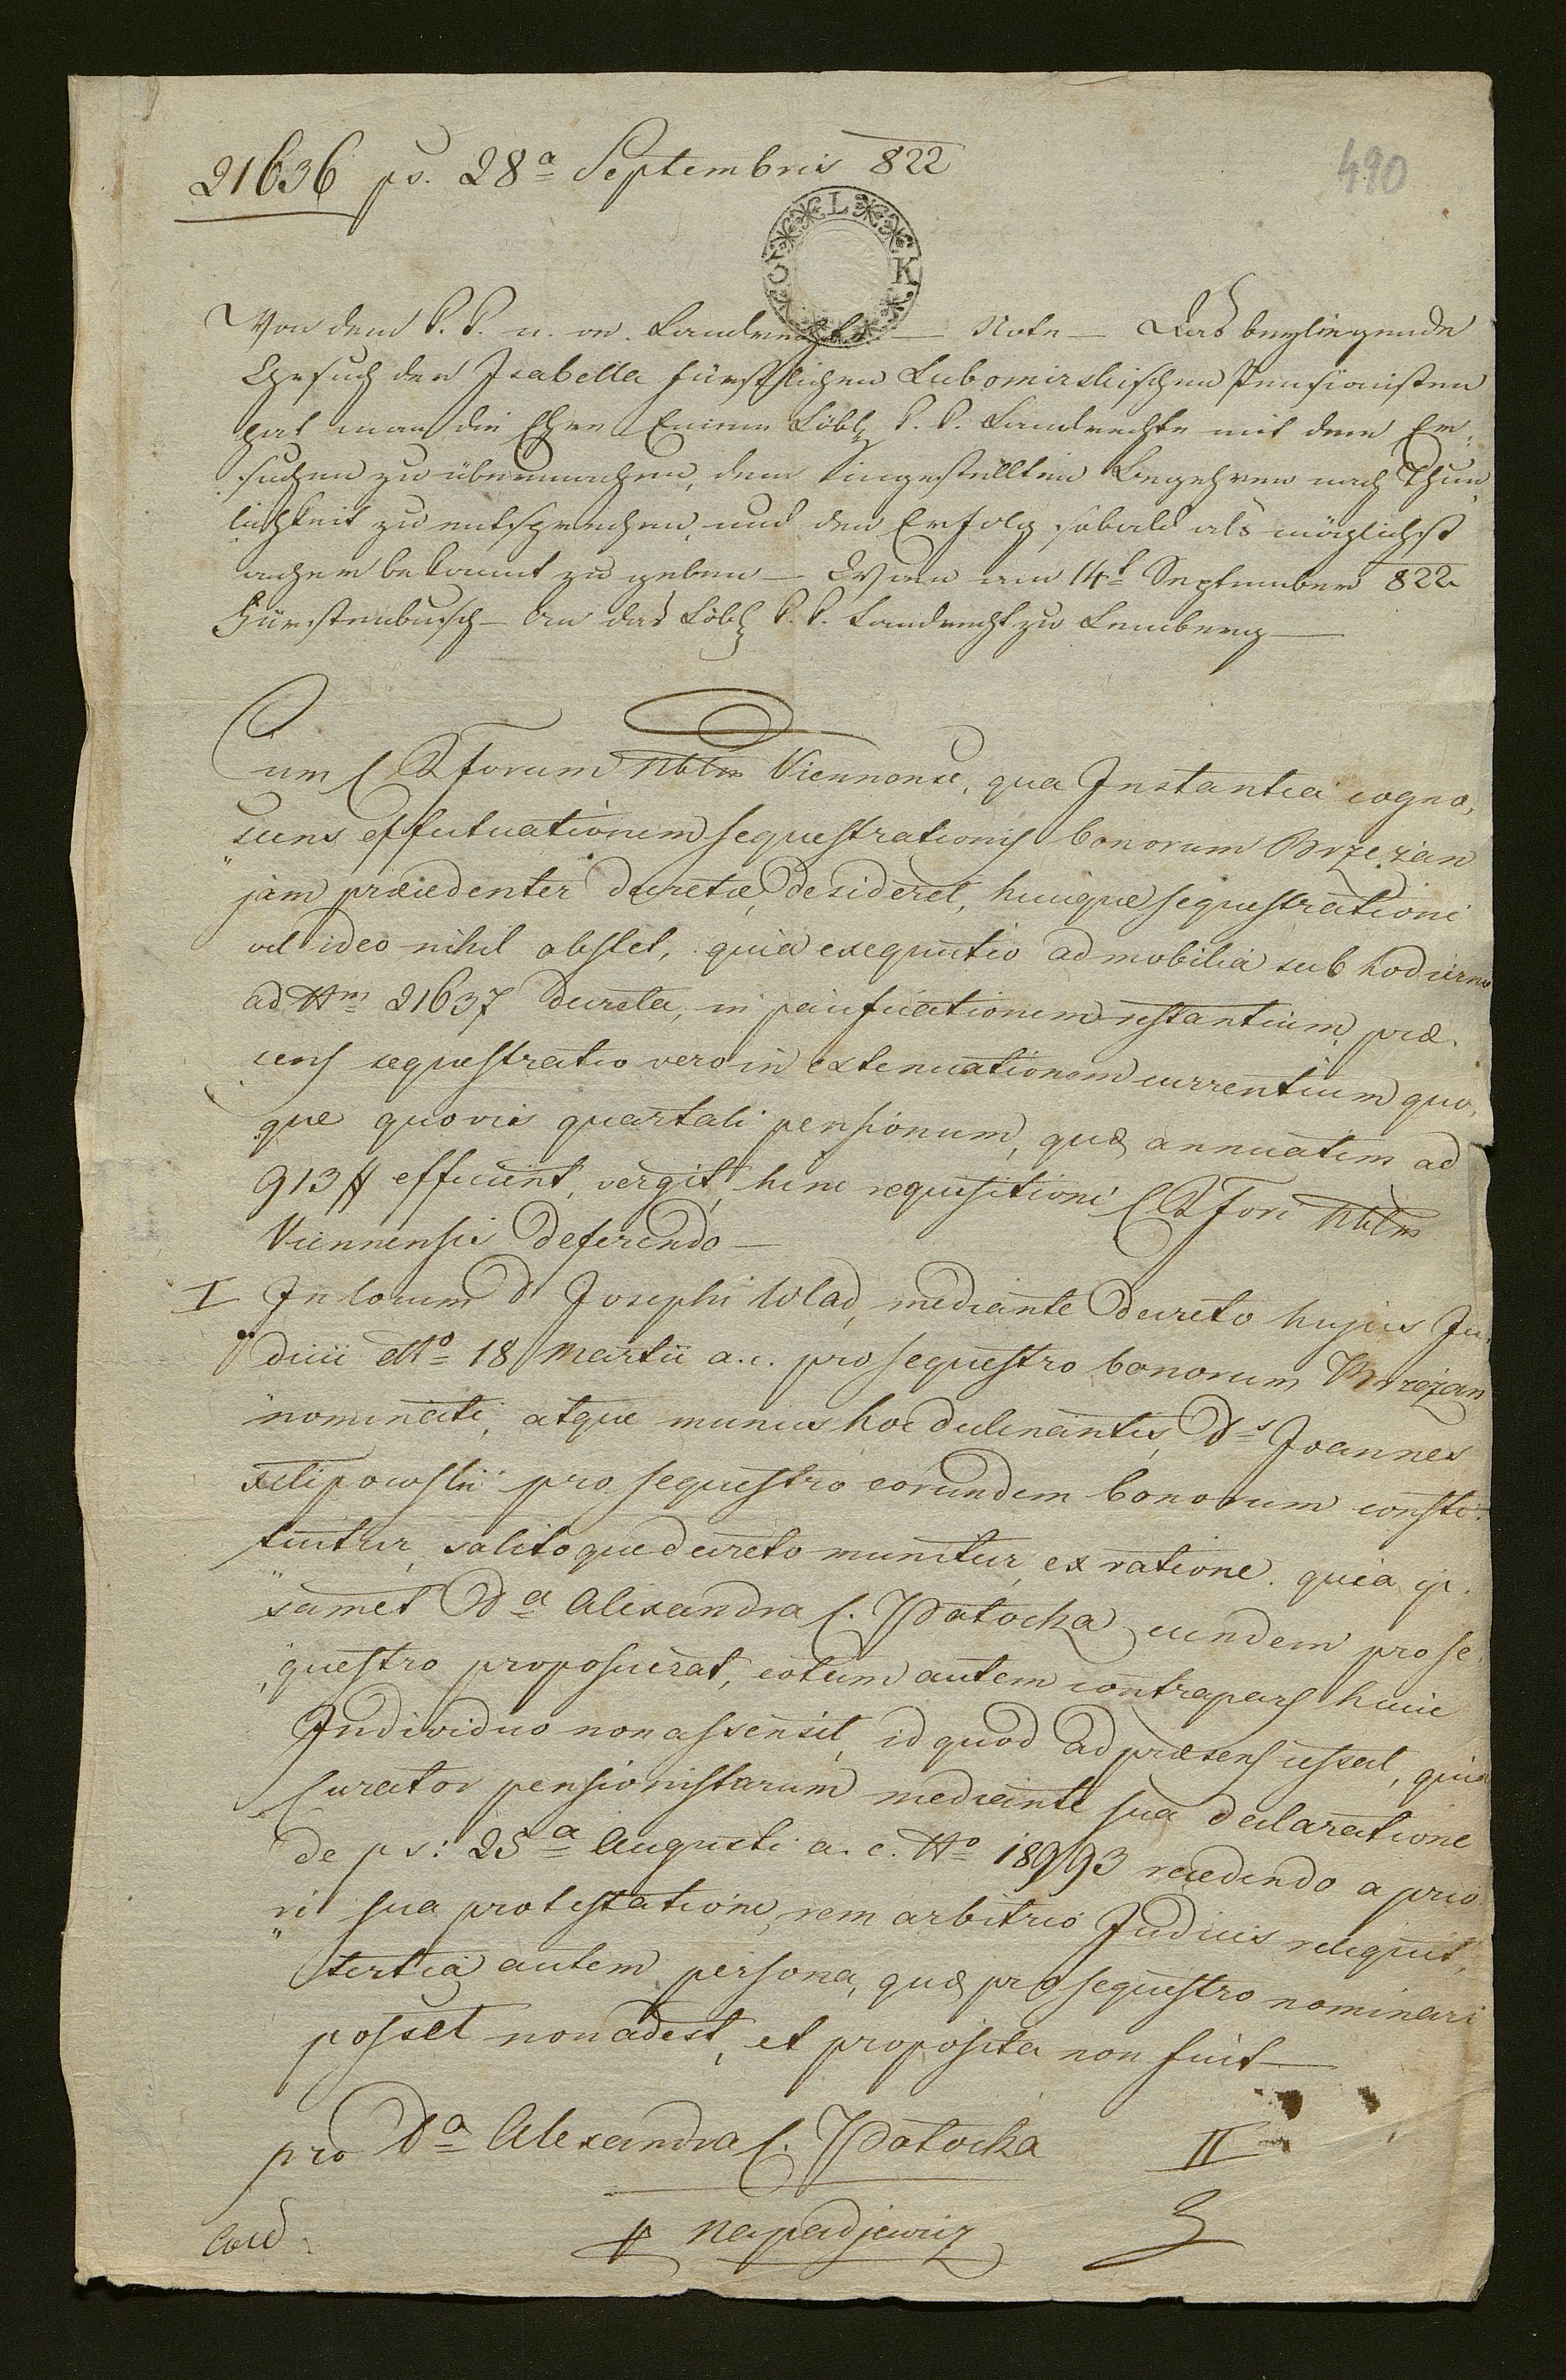 21636 ps. 28ª Septembris 822
490
C L K
Von dem k. k. n. oe. Landrechte — Note — Das beyliegende
Gesuch der Isabella fürstlichen Lubomirskischen Pensionisten
hat man die Ehre Einem Löbl k. k. Landrechte mit dem Er,
suchen zu übermachen, dem hingestellten Begehren nach Thun,
lichkeit zu entsprechen, und den Erfolg sobald als möglichst
anher bekannt zu geben — Wien am 14t September 822
Fürstenbusch — An das Löbl k. k. Landrecht zu Lemberg —
Cum C R Forum Nblm Viennense, qua Instantia cogno,
scens effectuationem sequestrationis bonorum Brzezan
jam praecedenter decretae, desideret, huicque sequestrationi
vel ideo nihil obstet, quia exequutio ad mobilia sub hodierno
ad Nm 21637 decreta, in pacificationem restantium, prae,
sens sequestratio vero in extenuationem currentium quo,
que quovis quartali pensionum, quae annuatim ad
913 f efficiunt, vergit, hinc requisitioni C R Fori Nblm
Viennensis deferendo —
I In locum D Josephi Wlad, mediante decreto hujus Ju,
dicii dtto 18 Martii a. c. pro sequestro bonorum Brzezan
nominati, atque munus hoc declinantis, Ds Joannes
Filipowski pro sequestro eorundem bonorum consti,
tuitur, solitoque decreto munitur, ex ratione. quia ip,
samet Da Alexandra C. Potocka eundem pro se,
questro proposuerat, eotum autem contrapars huic
Individuo non assensit, id quod ad praesens cessat, quia
Curator pensionistarum mediante sua declaratione
de ps: 25ª Augusti a. c. No 18993 recedendo a prio
ri sua protestatione, rem arbitrio Judicis reliquit,
tertia autem persona, quae pro sequestro nominari
posset non adest, et proposita non fuit —
pro Da Alexandra C. Potocka II
Napadjewicz